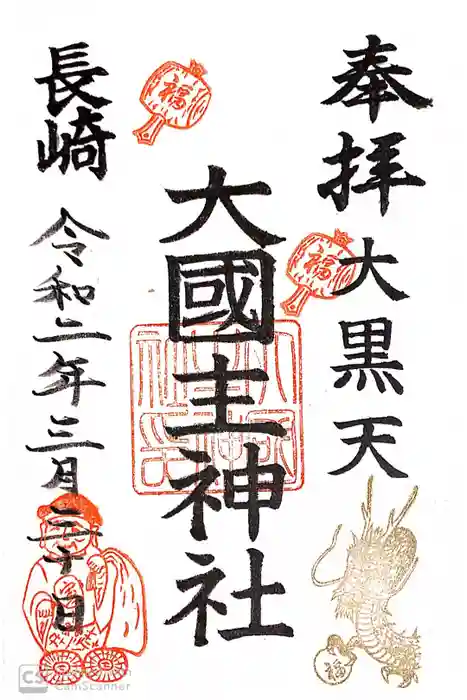 奉拝
大黒天
大國主神社
長崎
令和二年三月二十日
福
福
福
CS CamScanner